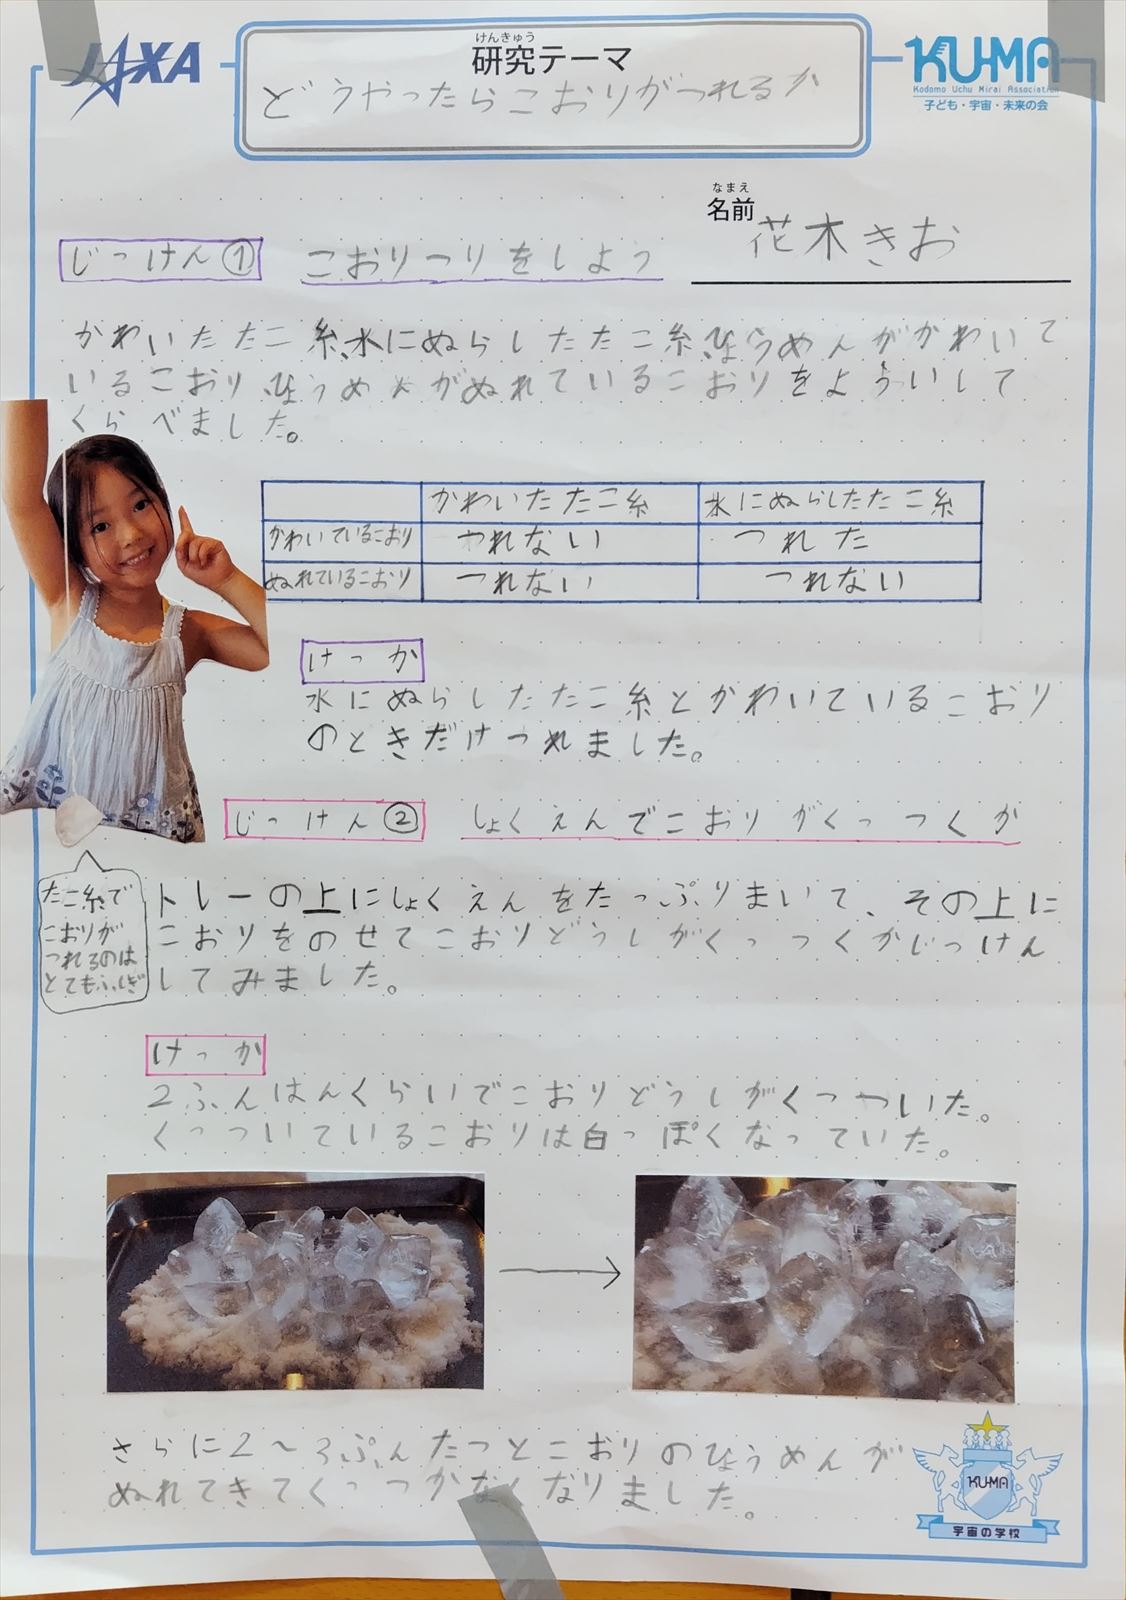 JAXA
けんきゅう
研究テーマ
どうやったらこおりがつれるか
KU-MA
Kodomo Uchu Mirai Association
子ども・宇宙・未来の会
なまえ
名前
花木きお
じっけん①
こおりつりをしよう
かわいたたこ糸、水にぬらしたたこ糸、ひょうめんがかわいて
いるこおり、ひょうめんがぬれているこおりをよういして
くらべました。
かわいたたこ糸 水にぬらしたたこ糸
かわいているこおり つれない つれた
ぬれているこおり つれない つれない
けっか
水にぬらしたたこ糸とかわいているこおり
のときだけつれました。
じっけん②
しょくえんでこおりがくっつくか
たこ糸で
こおりが
つれるのは
とてもふしぎ
トレーの上にしょくえんをたっぷりまいて、その上に
こおりをのせてこおりどうしがくっつくかじっけん
してみました。
けっか
2ふんはんくらいでこおりどうしがくっついた。
くっついているこおりは白っぽくなっていた。
さらに2〜3ぷんたつとこおりのひょうめんが
ぬれてきてくっつかなくなりました。
KU-MA
宇宙の学校